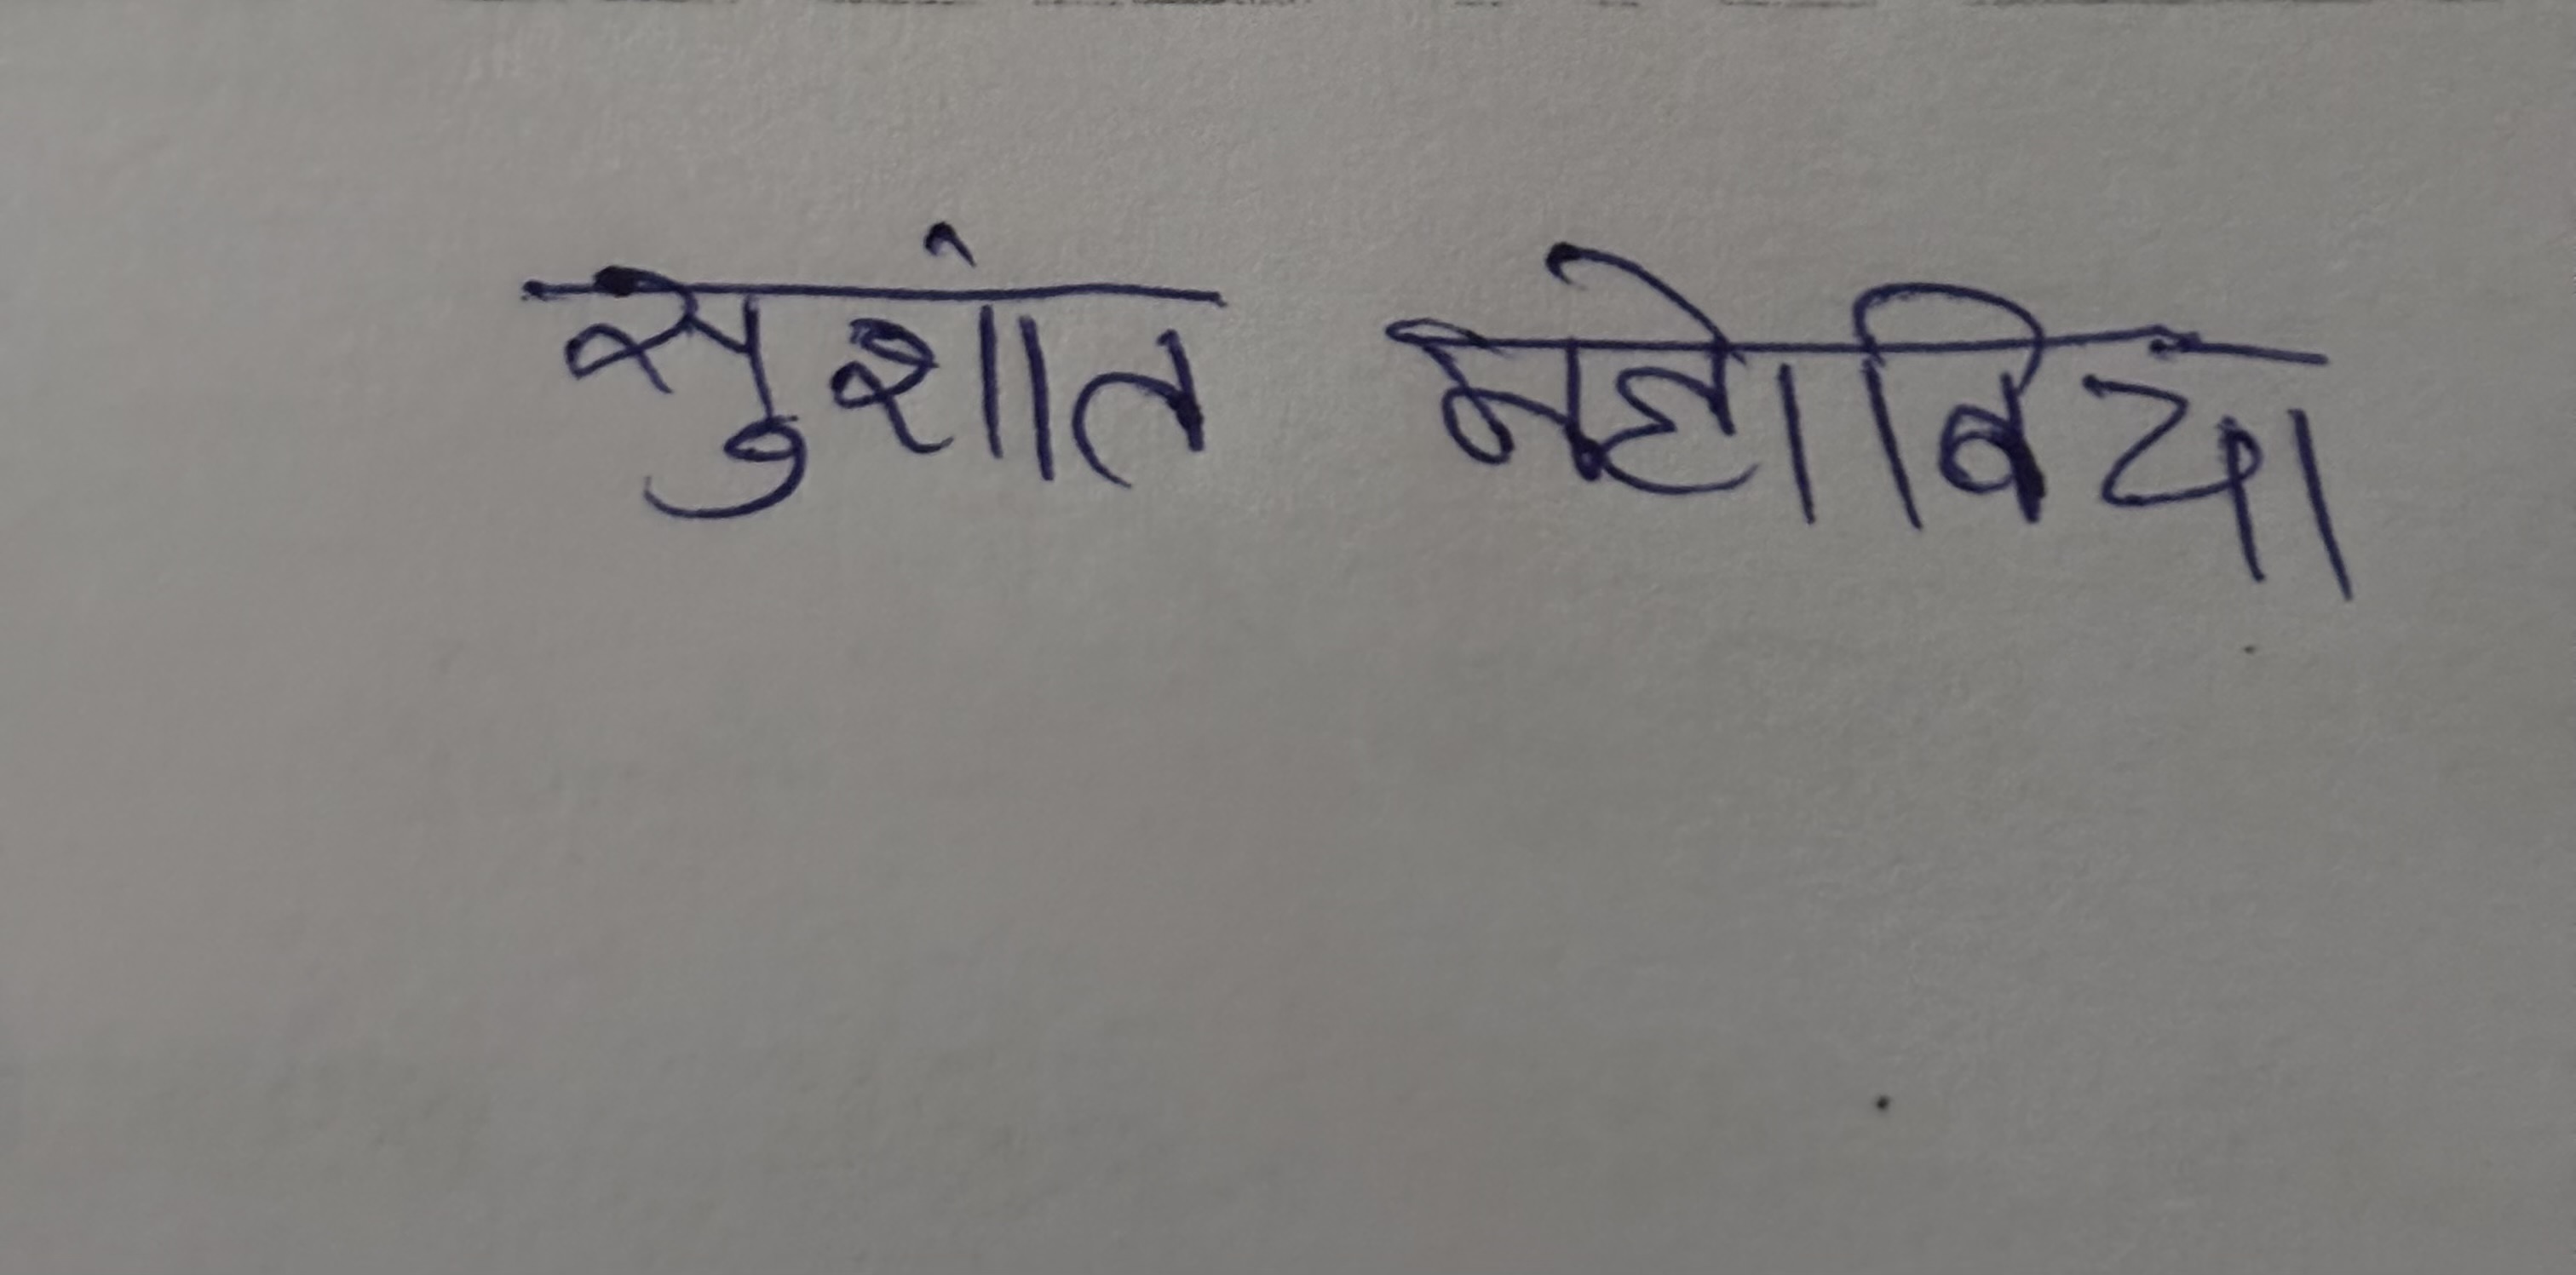 सुशांत महोबिया